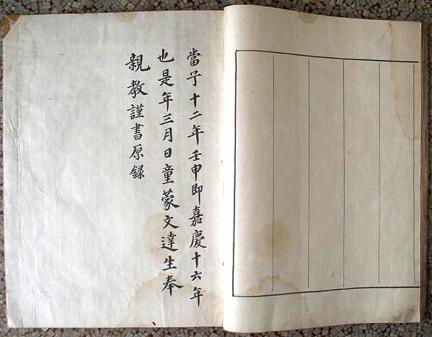 當子十二年壬申即嘉慶十六年
也是年三月日童蒙文達生奉
親教謹書原錄